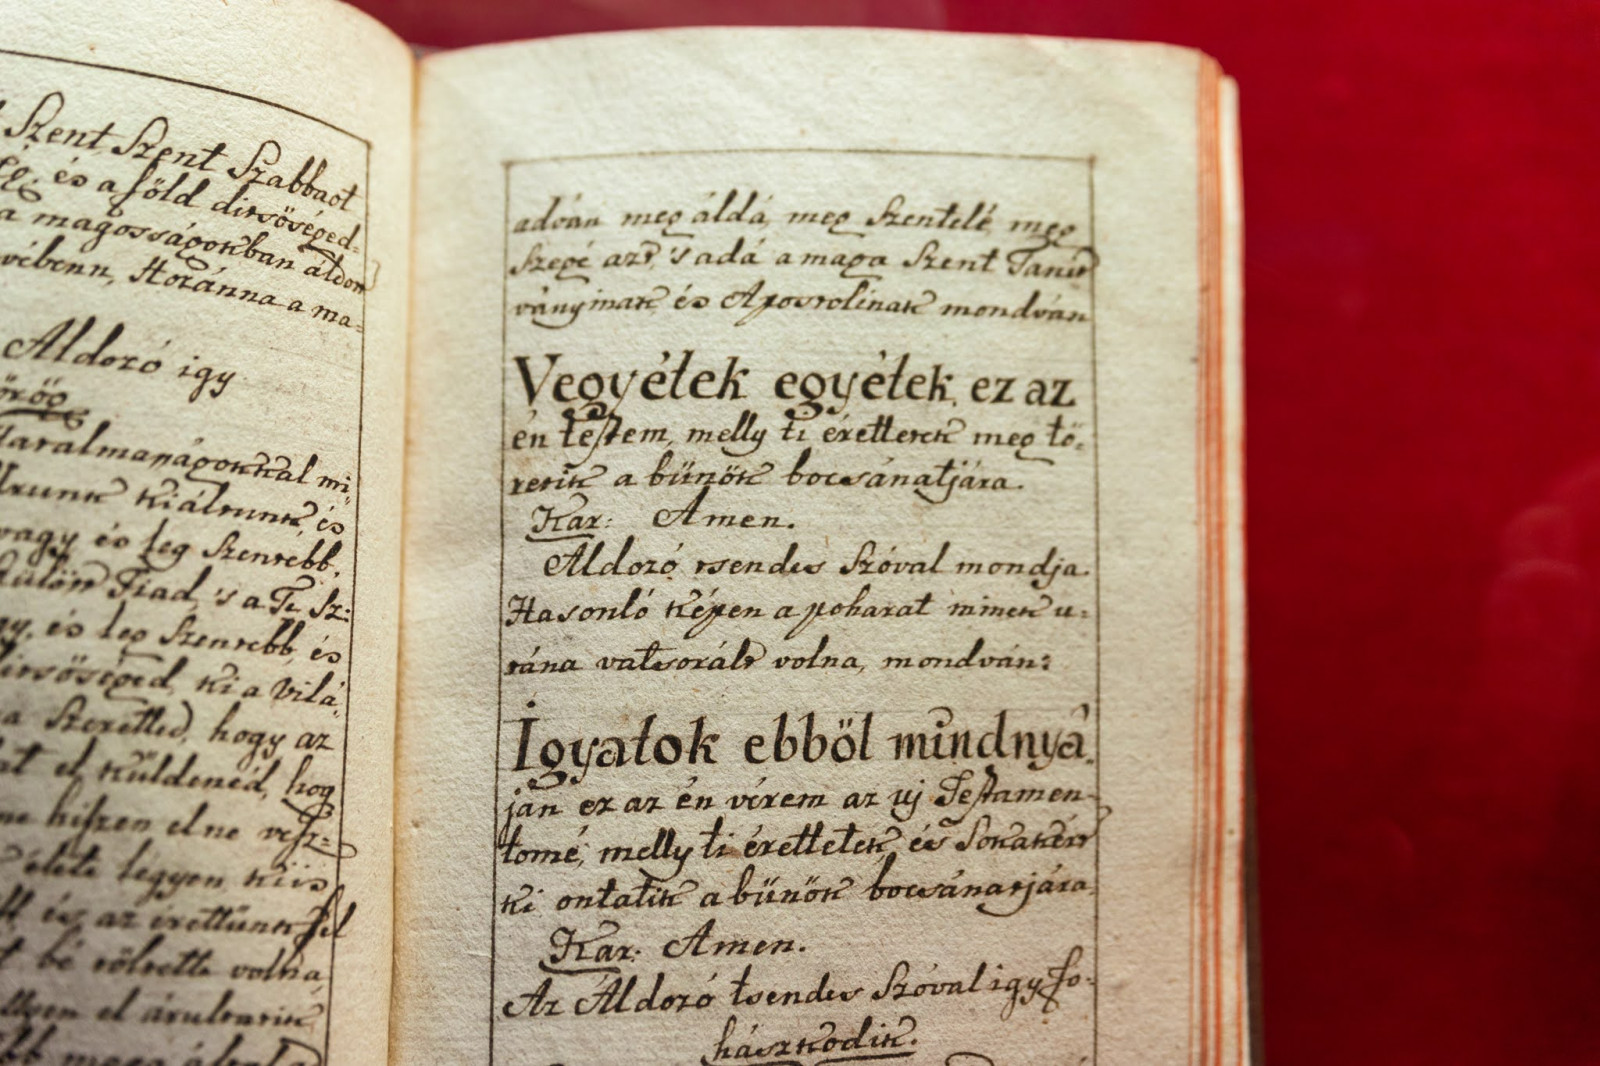 Szent Szent Szabbaot
és a föld ditsőséged=
a magosságokban áldon
vébenn, Hozánna a ma=
Áldozó igy
Taralmaságokkal mi
kiáltunk és
vagy és leg Szentébb,
Fiad, 's a Te Sz:
és leg Szentebb, és
ditsőséged, ki a Vilá=
a Szeretted, hogy az
el küldenéd, hog
hiszen el ne vesz=
élete legyen, ki is
és az érettünk fel
bé tölrötte volna,
el árultatik
adván meg áldá, meg Szentelé, meg
Szegé azt, 's adá a maga Szent Tanít
ványinak és Apostolinak mondván
Vegyétek egyétek, ez az
én testem, melly ti érettetek meg tö=
retik a bűnök bocsánatjára.
Kar: Amen.
Áldozó tsendes Szóval mondja.
Hasonló képen a poharat minek u=
tána vatsorált volna, mondván:
Igyatok ebböl mindnyá
ján ez az én vérem az uj Testamen=
tomé, melly ti érettetek, és Sokakért
ki ontatik a bűnök bocsánatjára.
Kar: Amen.
Az Áldozó tsendes Szóval igy fo=
hászkodik.